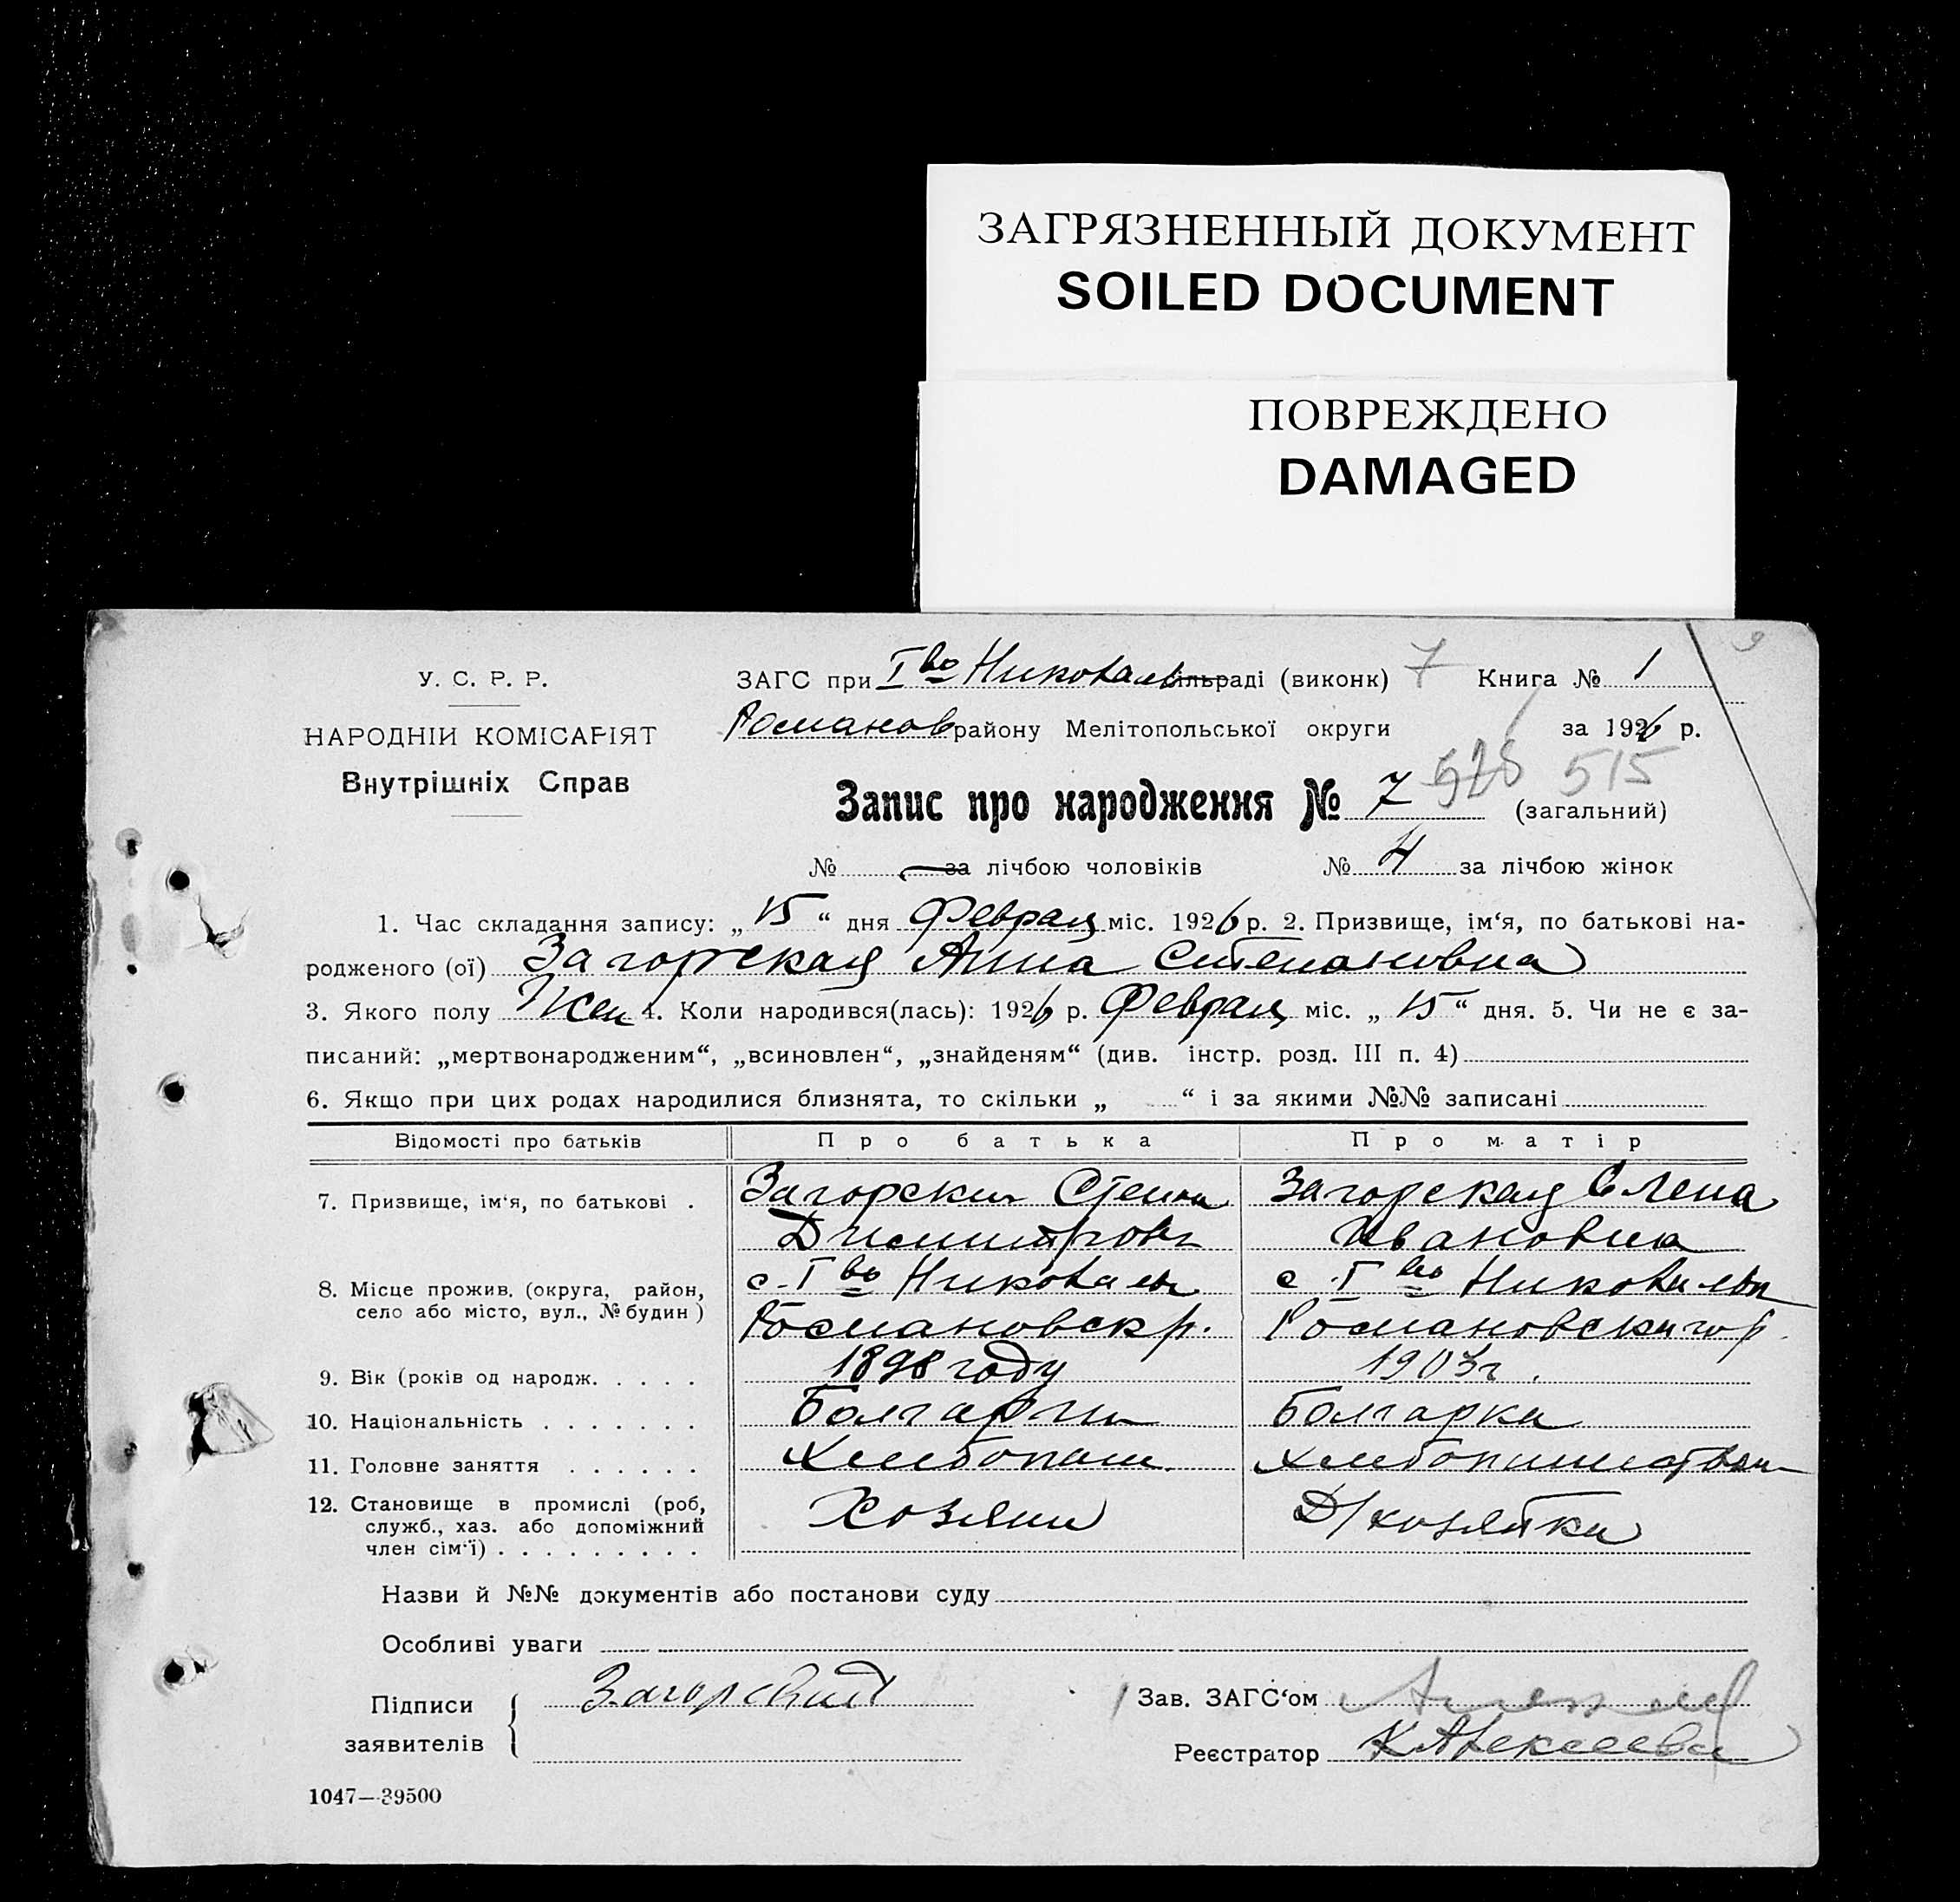 ЗАГРЯЗНЕННЫЙ ДОКУМЕНТ
SOILED DOCUMENT
ПОВРЕЖДЕНО
DAMAGED
9
У. С. Р. Р.
НАРОДНІЙ КОМІСАРІЯТ
Внутрішніх Справ
ЗАГС при І во Николаев сільраді (виконк) 7 Книга № 1
Романов району Мелітопольської округи за 1926 р.
Запис про народження № 7 526 515 (загальний)
№ за лічбою чоловіків № 4 за лічбою жінок
1. Час складання запису: „ 15 “ дня Февраля міс. 1926 р. 2. Призвище, ім‘я, по батькові на-
родженого (ої) Загорская Анна Степановна
3. Якого полу Жен 4. Коли народився(лась): 1926 р. Февраля міс. „ 15 “ дня. 5. Чи не є за-
писаний: „мертвонародженим“, „всиновлен“, „знайденям“ (див. інстр. розд. III п. 4)
6. Якщо при цих родах народилися близнята, то скільки „ “ і за якими №№ записані
Відомості про батьків Про батька Про матір
7. Призвище, ім‘я, по батькові . Загорский Степан Загорская Елена
Димитров Ивановна
8. Місце прожив. (округа, район, с. І во Николаев с. І во Николаев
село або місто, вул., № будин ) Романовск р. Романовского р.
9. Вік (років од народж. . . . . 1898 году 1903 г.
10. Національність . . . . . . . Болгарин Болгарка
11. Головне заняття . . . . . . Хлебопаш. Хлебопашество
12. Становище в промислі (роб, Хозяин Д/хозяйка
служб., хаз. або допоміжний
член сім‘ї) . . . . . . . . .
Назви й №№ документів або постанови суду
Особливі уваги
Підписи Загорский Зав. ЗАГС‘ом
заявителів Реєстратор К Алексеева
1047—39500